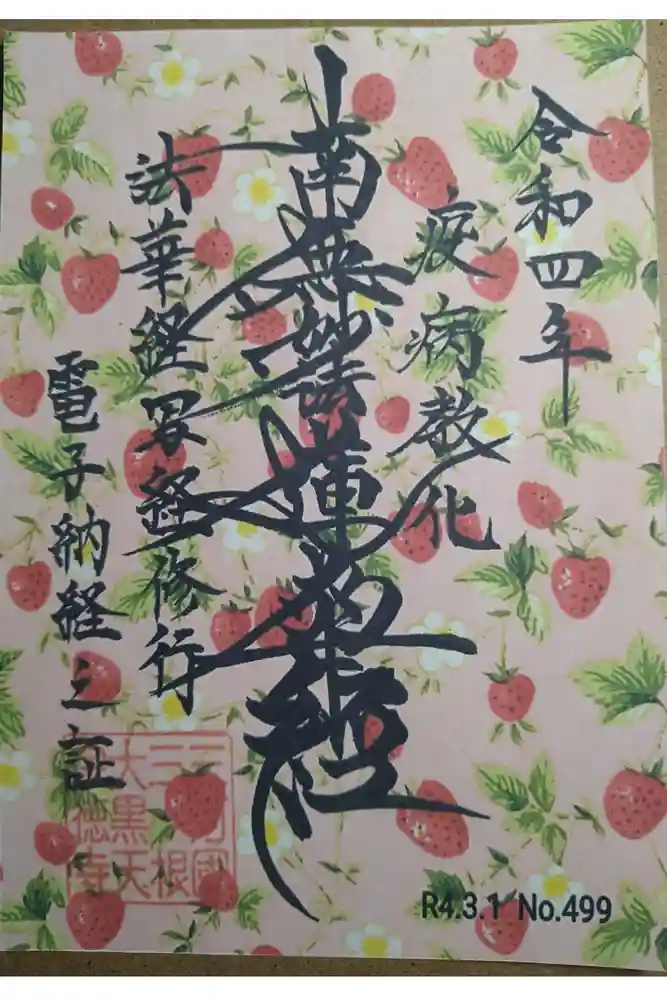 令和四年
疫病教化
南無妙法蓮華経
法華経写経修行
電子納経之証
大黒天
徳寺
R4.3.1 No.499